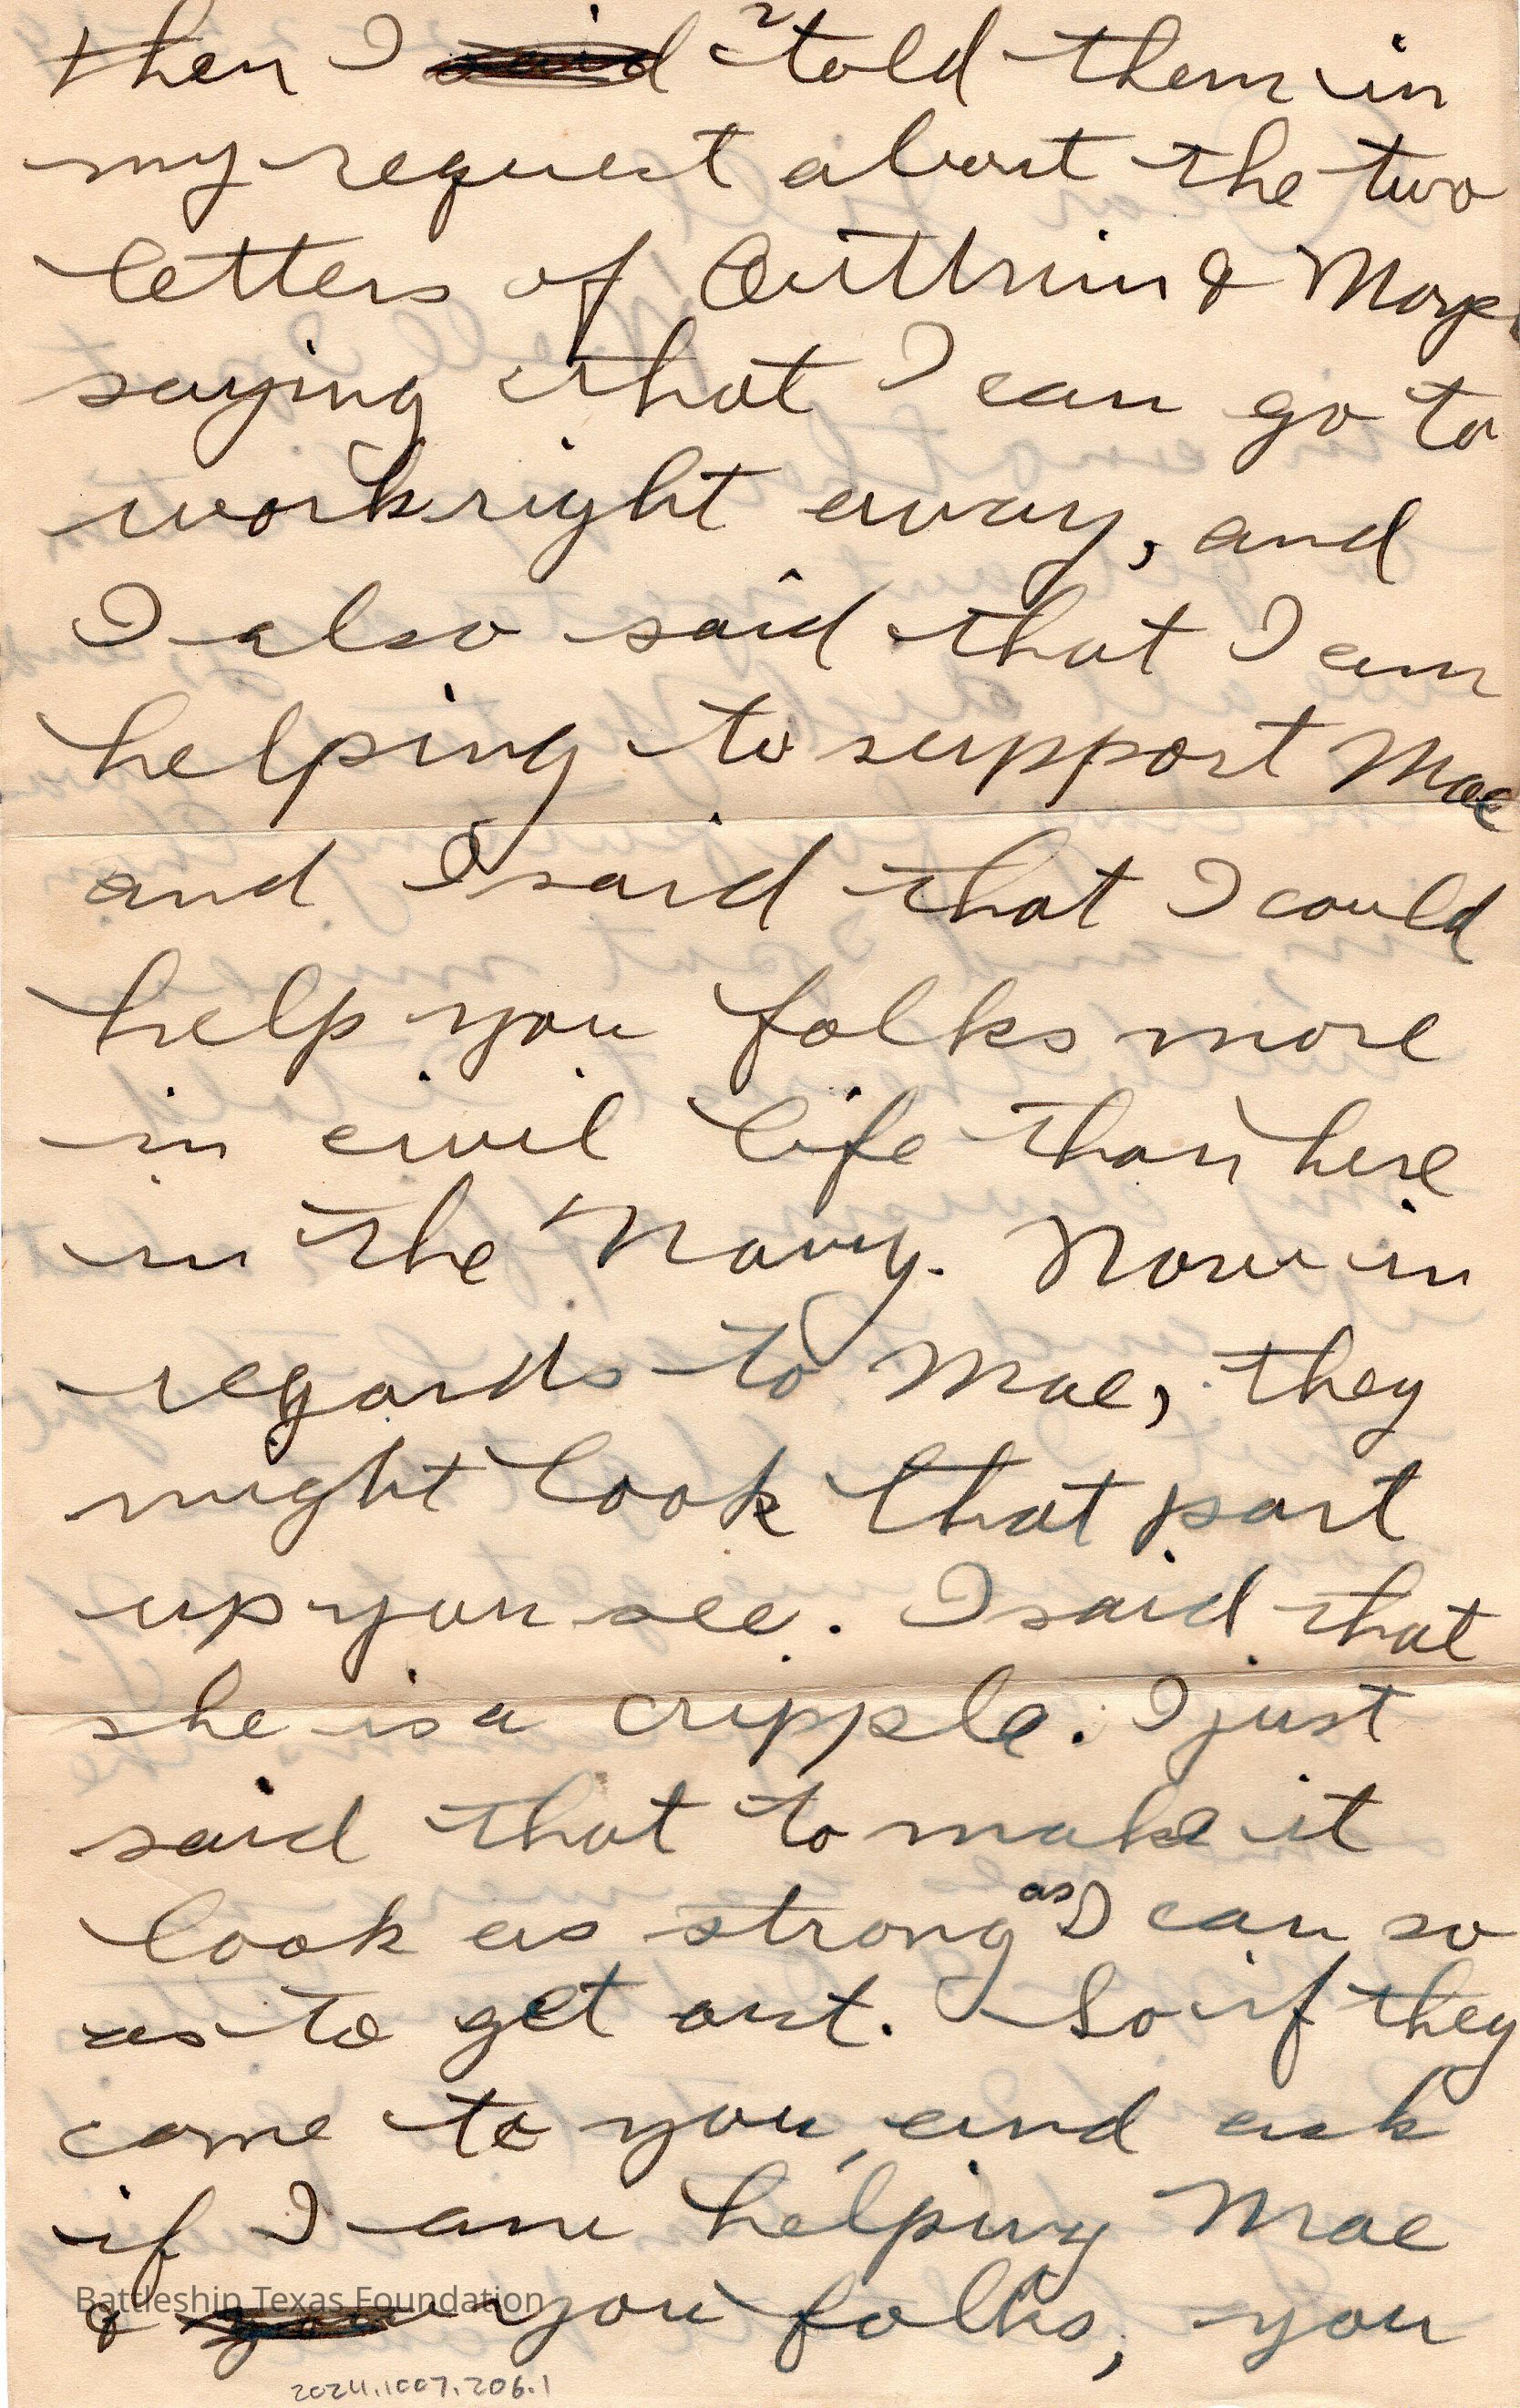 then I said told them in
my request about the two
letters of & 
saying that I can go to
work right away, and
I also said that I am
helping to support Mae
and I said that I could
help you folks more
in civil life than here
in the Navy. Now in
regards to Mae, they
might look that part
up you see. I said that
she is a cripple. I just
said that to make it
look as strong as I can so
as to get out. So if they
come to you, and ask
if I am helping Mae
& you folks, you
Battleship Texas Foundation
2024.1007.206.1